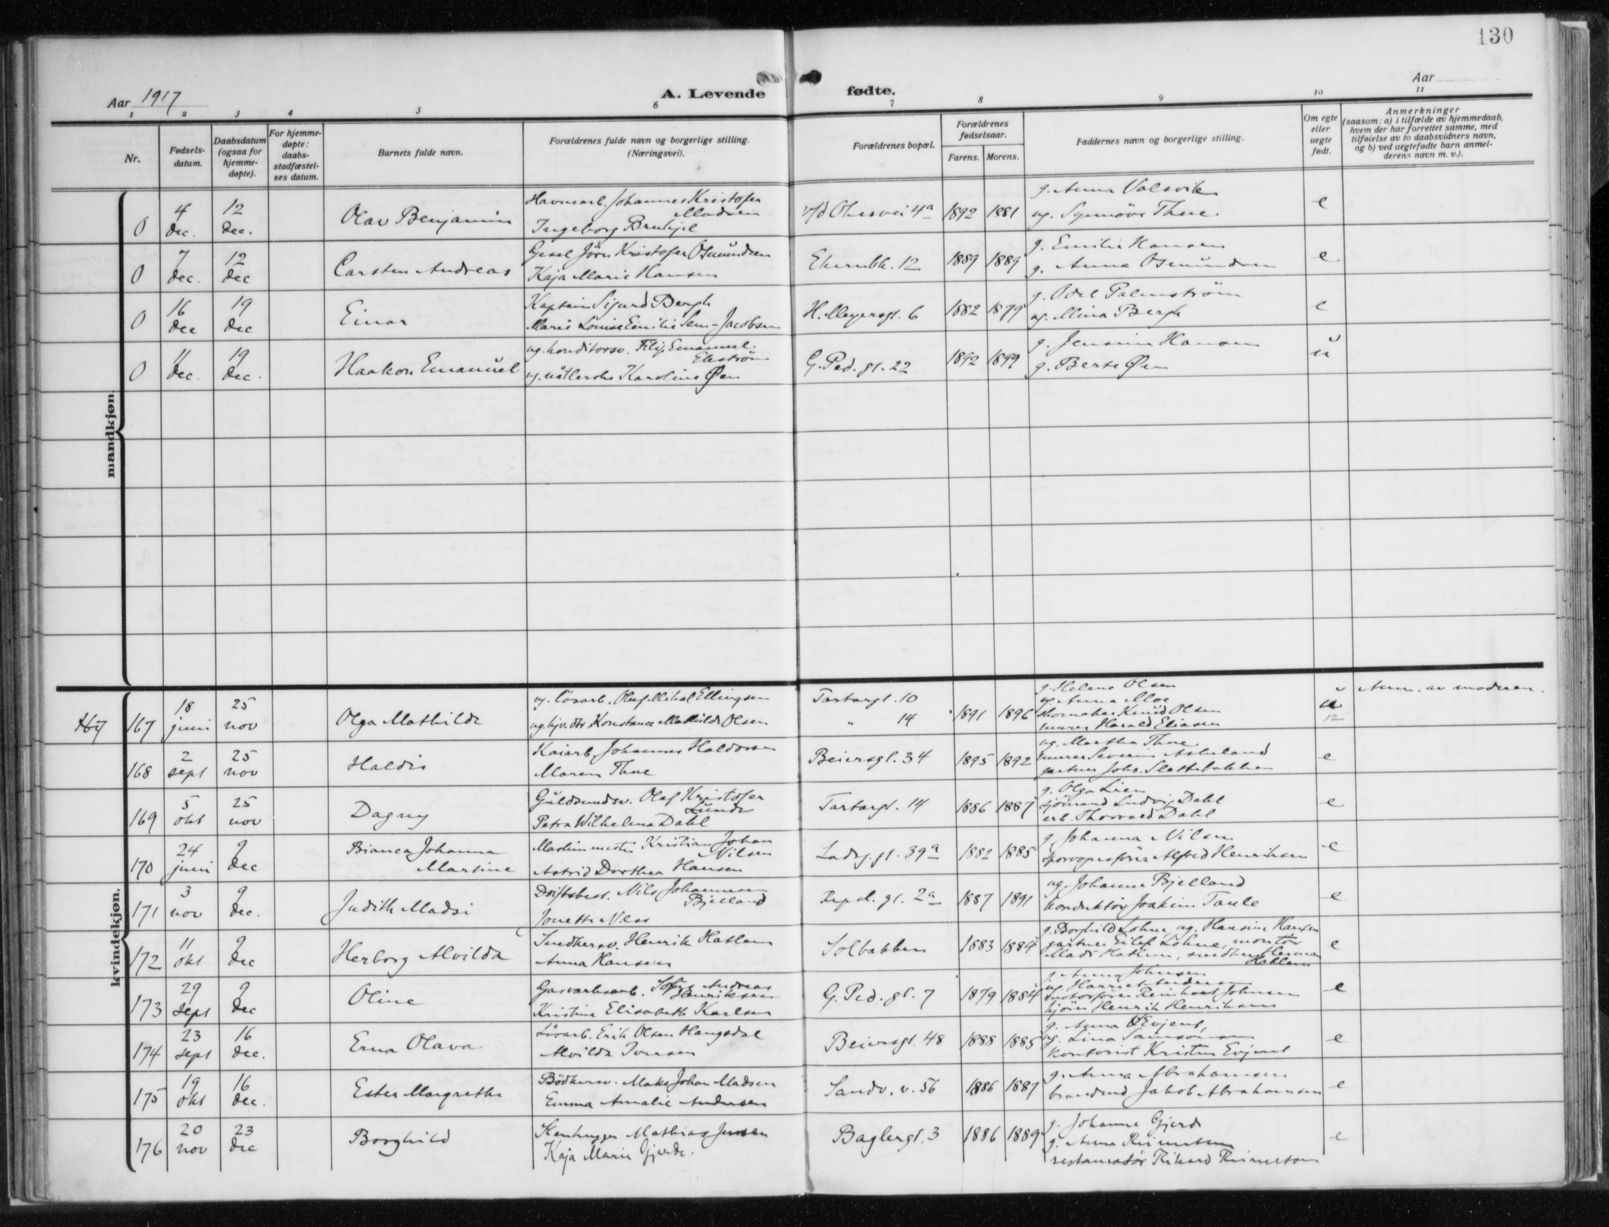 130
Aar 1917
A. Levende fødte.
Aar
1 2 3 4 5 6 7 8 9 10 11
Nr.
Fødsels-
datum.
Daabsdatum
(ogsaa for
hjemme-
døpte).
For hjemme-
døpte:
daabs-
stadfæstel-
ses datum.
Barnets fulde navn.
Forældrenes fulde navn og borgerlige stilling.
(Næringsvei).
Forældrenes bopæl.
Forældrenes
fødselsaar.
Farens. Morens.
Faddernes navn og borgerlige stilling.
Om egte
eller
uegte
født.
Anmerkninger
(saasom: a) i tilfælde av hjemmedaab,
hvem der har forrettet samme, med
tilføielse av to daabsvidners navn,
og b) ved uegtefødte barn anmel-
derens navn m. v.).
mandkjøn
0 4 dec. 12 dec. Olav Benjamin
Havnearb. Johannes Kristofer
Madsen
Ingeborg
4a 1892 1881
g. Anna
ug. Synnøve Thue
e
0 7 dec. 12 dec Carsten Andreas
Jørn Kristofer Osmundsen
Kaja Marie Hansen
12 1889 1889
g. Emilie Hansen
g. Anna Osmundsen
e
0 16 dec 19 dec Einar
Kaptein Sigurd Bergh
Marie Louise Emilie Sem-Jacobsen
H. Meyersgt. 6 1882 1879
g. Odel Palmstrøm
ug. Mina Bergh
e
0 11 dec. 19 dec. Haakon Emanuel
ug. konditorsv. Filip Emanuel
Ekstrøm
Karoline Øen
G. Ped. gt. 22 1892 1899
g. Jensine Hansen
g. Berte Øen
u
kvindekjøn.
167 167 18 juni 25 nov Olga Mathilde
ug. løsarb. Olaf Mikal Ellingsen
ug. hjv. dtr Konstance Mathilde Olsen
Tartargt. 10
" 14
1891 1896
g. Helene Olsen
ug. Anna Moe
Knud Olsen
murer Harald Eliasen
u
12
Anm. av moderen.
168 2 sept 25 nov Haldis
Kaiarb. Johannes Haldorsen
Maren Thue
Beiersgt. 34 1895 1892
ug. Martha Thue
murer Severin
gartner Johs. Slettebakken
e
169 5 okt 25 nov Dagny
Guldsmedsv. Olaf Kristofer
Lunde
Petra Wilhelmine Dahl
Tartargt. 14 1886 1887
g. Olga Lien
sjømand Ludvig Dahl
Thorvald Dahl
e
170 24 juni 9 dec Bianca Johanna
Martine
Maskinmester Kristian Johan
Nilsen
Astrid Dorthea Hansen
Ladeg. gt. 39a 1882 1885
g. Johanna Nilsen
sporvognsfører Alfred Henriksen
e
171 3 nov 9 dec. Judith Madsi
Driftsbest. Nils Johannesen
Bjelland
Jonette
2a 1887 1891
ug. Johanne Bjelland
konduktør Joakim Taule
e
172 11 okt 9 dec Herborg Alvilda
Snedkersv. Henrik Hatlem
Anna Hansen
Solbakken 1883 1884
g. Borghild Lohne, ug. Hansine Hansen
gartner Eilef Lohne, montør
Mads Hatlem, snedker Herman
Hatlem
e
173 29 sept 9 dec Oline
Gasverksarb. Andreas
Henriksen
Kristine Elisabeth Karlsen
G. Ped. gt. 7 1879 1884
g. Anna Johnsen
ug. Harriet
Reinholt Johnsen
Henrik Henriksen
e
174 23 sept 16 dec. Erna Olava
Løsarb. Erik Olsen Haugsdal
Alvilda Iversen
Beiersgt. 48 1888 1885
g. Anna Evjent,
ug. Lina Samsonsen
kontorist Kristen Evjent
e
175 19 okt 16 dec. Ester Margrethe
Bødkersv. Maks Johan Madsen
Emma Amalie Andersen
Sandv. v. 56 1886 1887
g. Anna Abrahamsen
brandmd Jakob Abrahamsen
e
176 20 nov 23 dec Borghild
Stenhugger Mathias Jensen
Kaja Marie Gjerde.
Baglergt. 3 1886 1889
g. Johanne Gjerde
g. Anna
restauratør Rikard
e